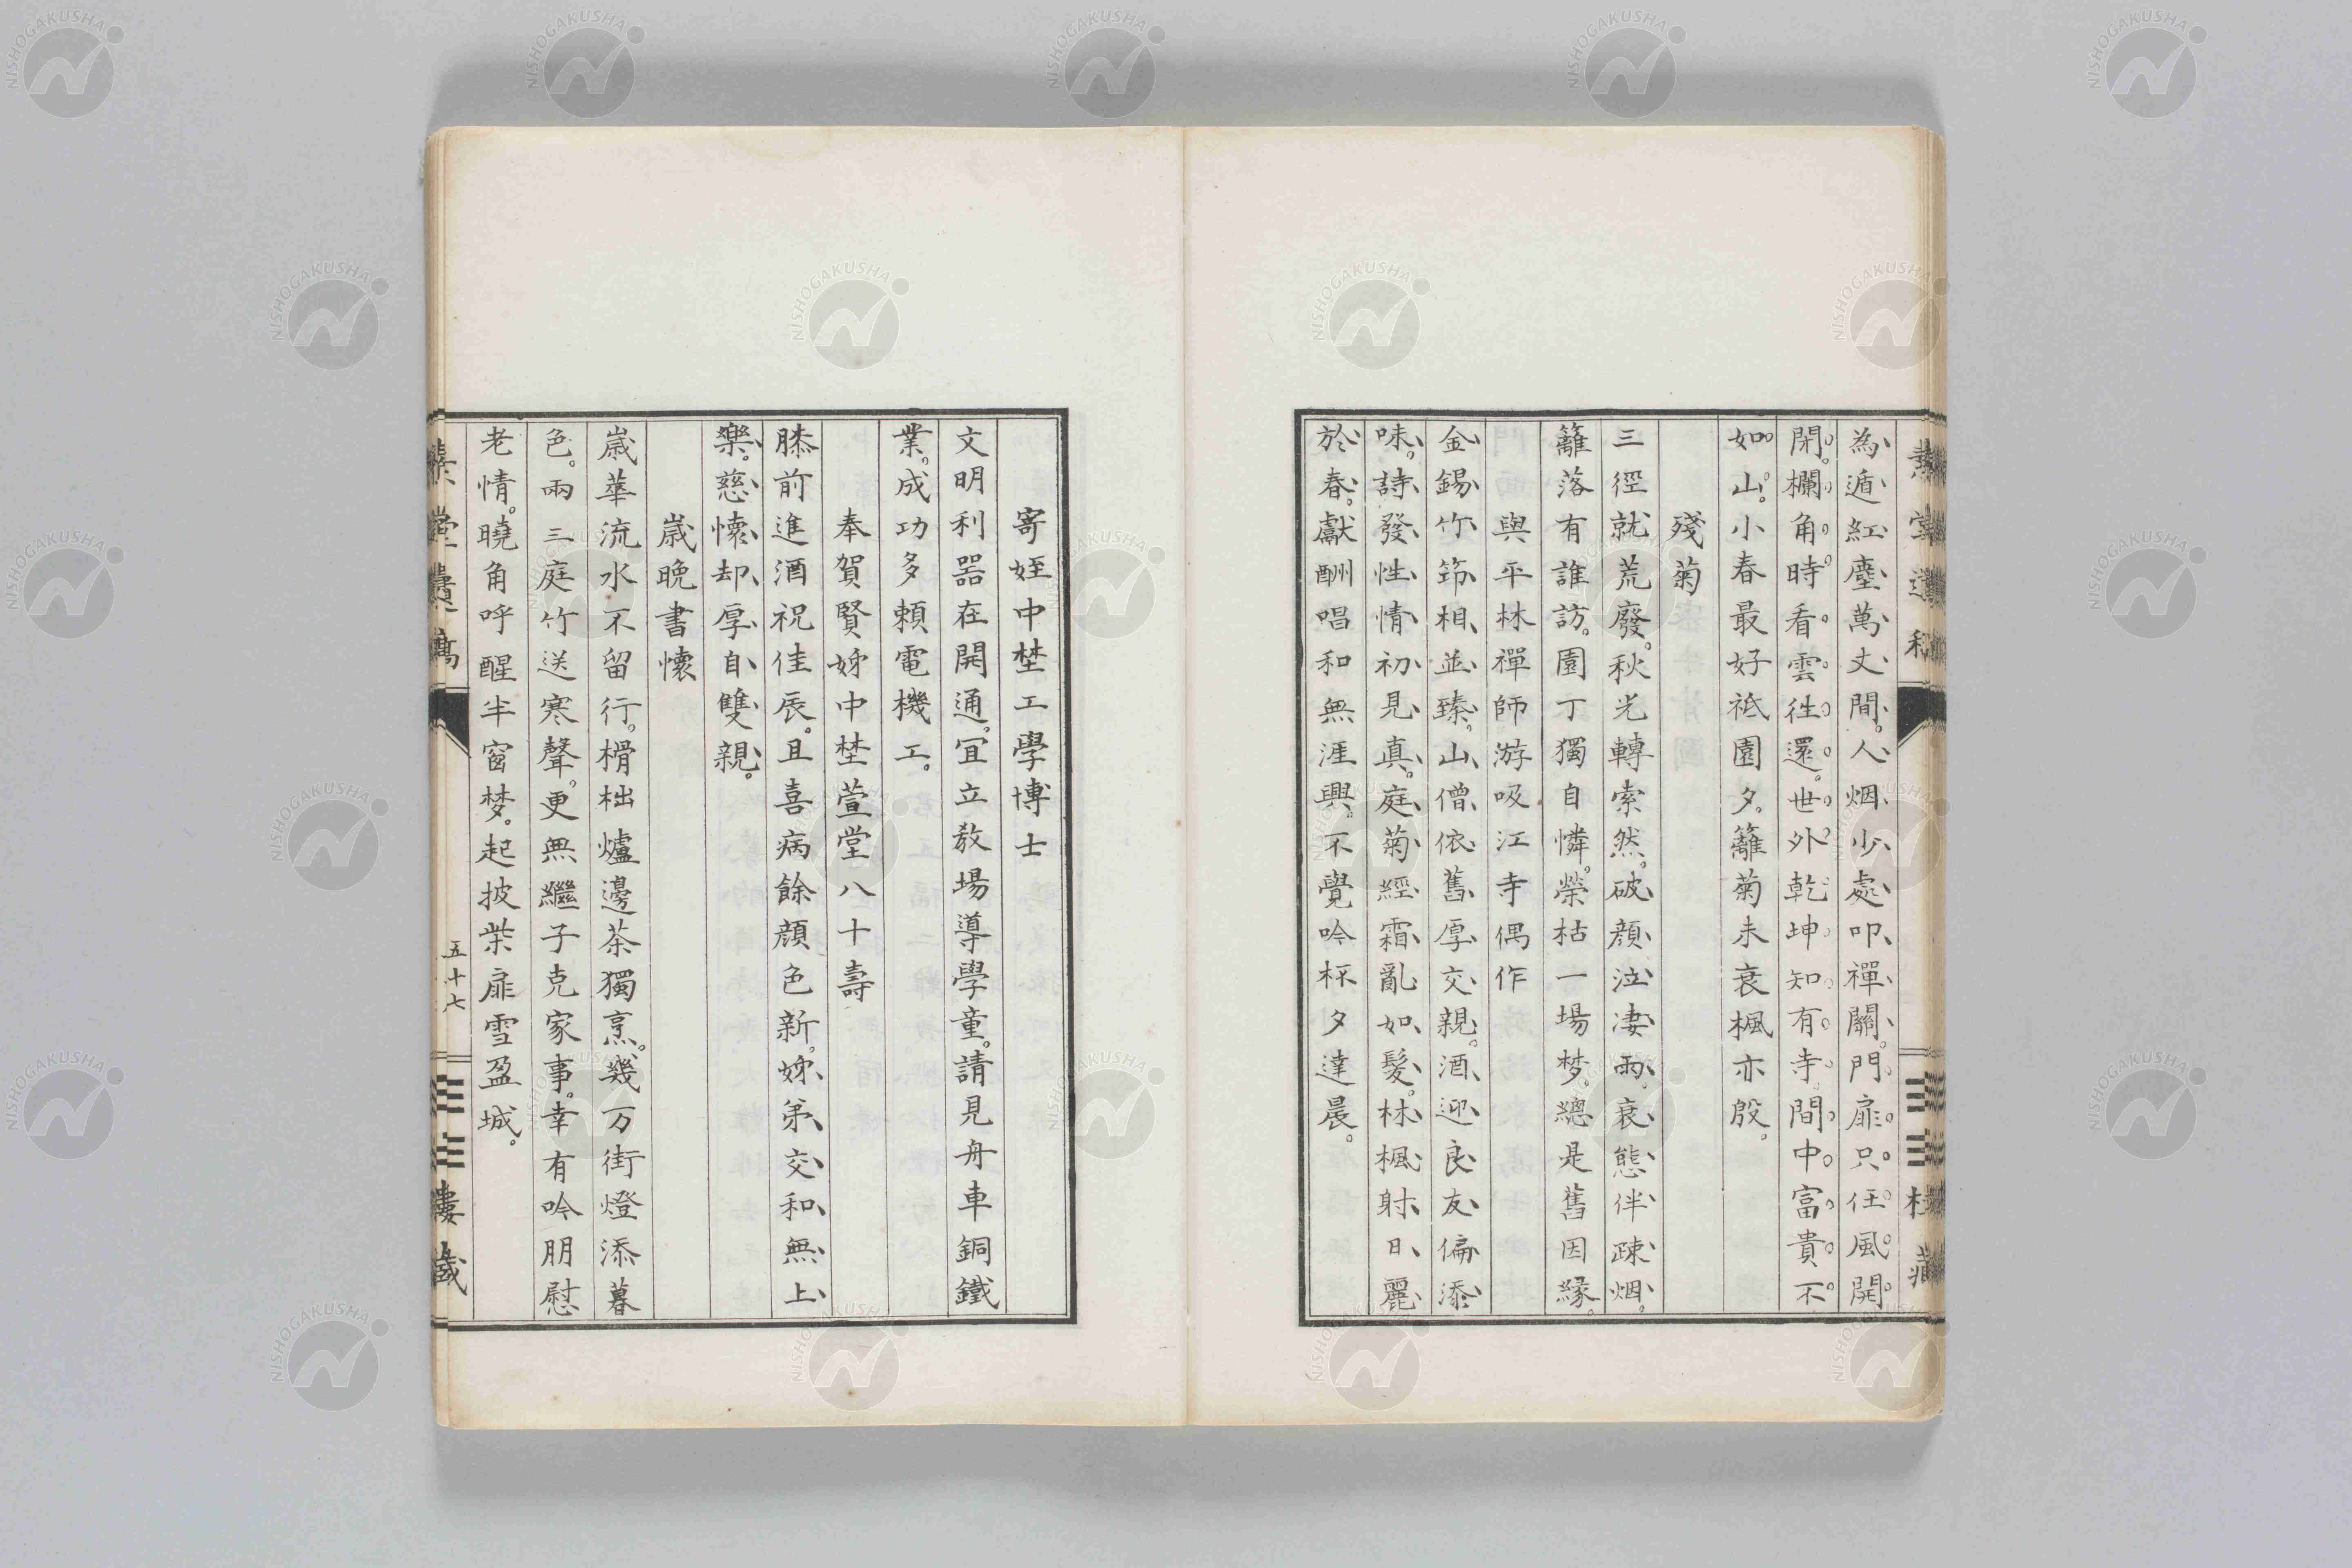 為遁紅塵萬丈間。人烟少處叩禪關。門扉只任風開
閉。欄角時看雲往還。世外乾坤知有寺。間中富貴不
如山。小春最好祗園夕。籬菊未衰楓亦殷。
殘菊
三徑就荒廢。秋光轉索然。破顔泣凄雨。衰態伴疎烟。
籬落有誰訪。園丁獨自憐。榮枯一場梦。總是舊因緣。
與平林禪師游吸江寺偶作
金錫竹笻相並臻。山僧依舊厚交親。酒迎良友偏添
味。詩發性情初見真。庭菊經霜亂如髮。林楓射日麗
於春。獻酬唱和無涯興。不覺吟杯夕達晨。
寄姪中埜工學博士
文明利器在開通。宜立教場導學童。請見舟車銅鐵
業。成功多頼電機工。
奉賀賢姊中埜萱堂八十壽
膝前進酒祝佳辰。且喜病餘顔色新。姊弟交和無上
樂。慈懷却厚自雙親。
歳晩書懷
歳華流水不留行。榾柮爐邊茶獨烹。幾万街燈添暮
色。兩三庭竹送寒聲。更無繼子克家事。幸有吟朋慰
老情。曉角呼醒半窗梦。起披柴扉雪盈城。
五十七
NISHOGAKUSHA